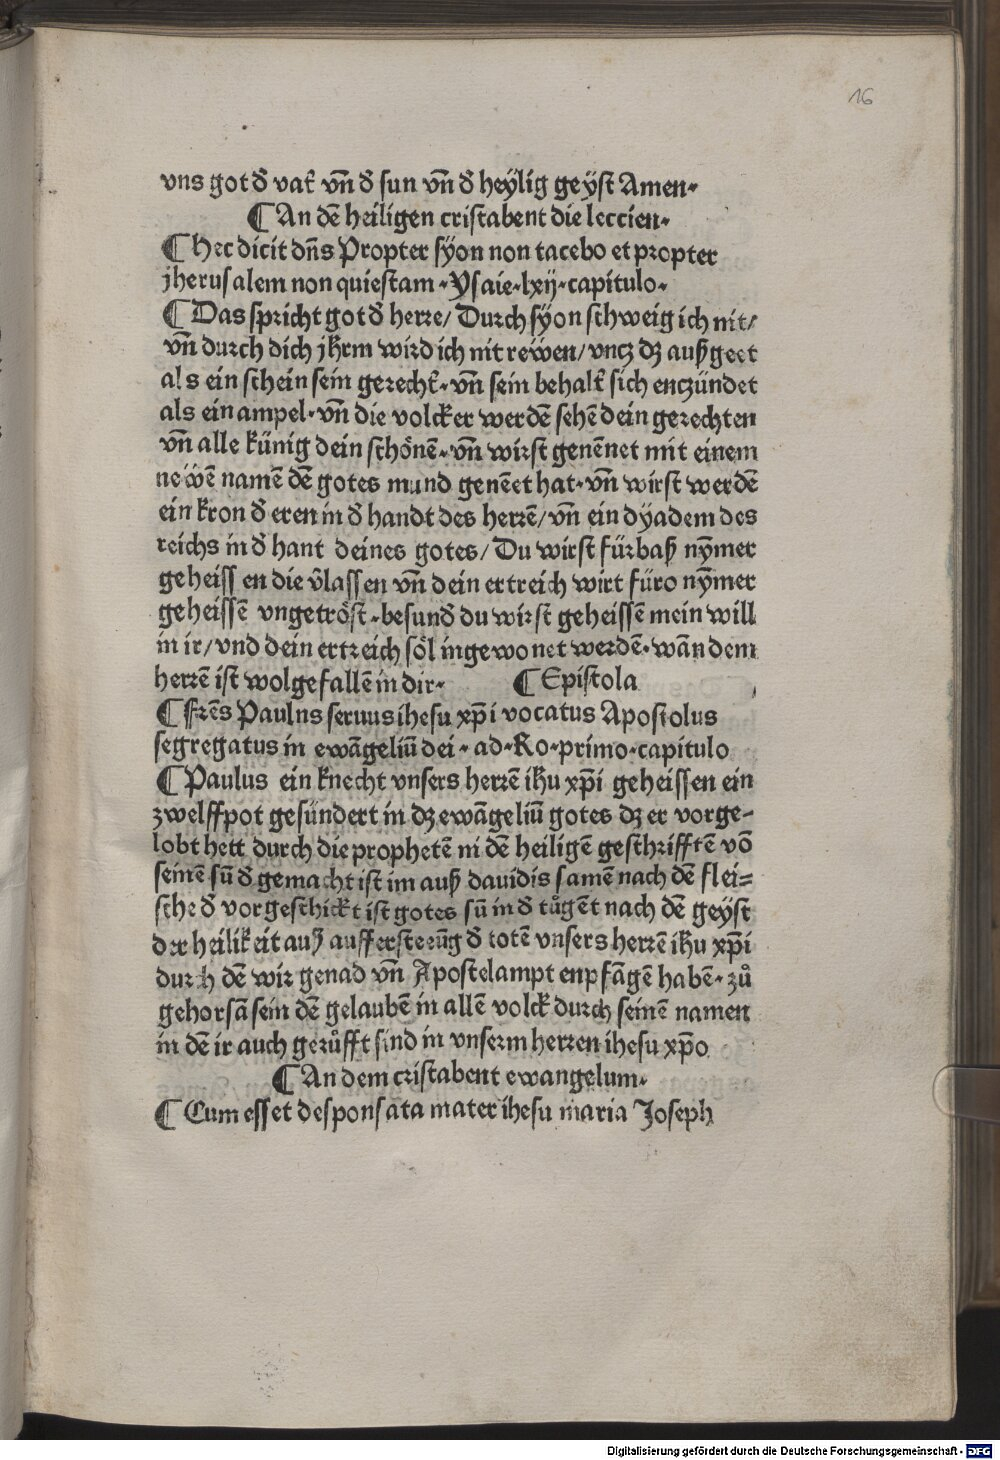 16
vns got đ vat᷑ vn̄ đ sun vn̄ đ heÿlig geÿst Amen·
¶ An dē heiligen cristabent die leccien·
¶ Hec dicit dn̄s Propter sÿon non tacebo et propter
jherusalem non quiestam·Ysaie·lxij·capitulo·
¶ Das spricht got đ herre/ Durch sÿon schweig ich nit/
vn̄ durch dich jhrm̄ wird ich nit rewen/ vncz dz außgeet
als ein schein sein gerecht᷑·vn̄ sein behalt᷑ sich enczündet
als ein ampel·vn̄ die volcker werdē sehē dein gerechten
vn̄ alle künig dein schönē·vn̄ wirst genēnet mit einem
newē namē dē gotes mund genēet hat·vn̄ wirst werdē
ein kron đ eren in đ handt des herrē/ vn̄ ein dÿadem des
reichs in đ hant deines gotes/ Du wirst fürbaß nȳmer
geheissen die v̄lassen vn̄ dein ertreich wirt füro nȳmer
geheissē vngetröst·besund đ du wirst geheissē mein will
in ir/ vnd dein ertreich sol ingewonet werdē·wān dem
herrē ist wolgefallē in dir· ¶ Epistola
¶ Frēs Paulus seruus ihesu xp̄i vocatus Apostolus
segregatus in ewāgeliū dei·ad·Ro·primo·capitulo
¶ Paulus ein knecht vnsers herrē ih̄u xp̄i geheissen ein
zwelffpot gesündert in dz ewāgeliū gotes dz er vorge-
lobt hett durch die prophetē ni dē heiligē geschrifftē vō
seinē sū đ gemacht ist im auß dauidis samē nach dē flei=
sche đ vorgeschickt ist gotes sū in đ tůgēt nach dē geÿst
der heilikeit auß auffersteūg đ totē vnsers herrē ih̄u xp̄i
durch dē wir genad vn̄ Apostelampt enpfāgē habē·zů
gehorsā sein dē gelaubē in allē volck durch seinē namen
in dē ir auch gerůfft sind in vnserm herren ihesu xp̄o
¶ An dem cristabent ewangelum·
¶ Cum esset desponsata mater ihesu maria Joseph
Digitalisierung gefördert durch die Deutsche Forschungsgemeinschaft - DFG